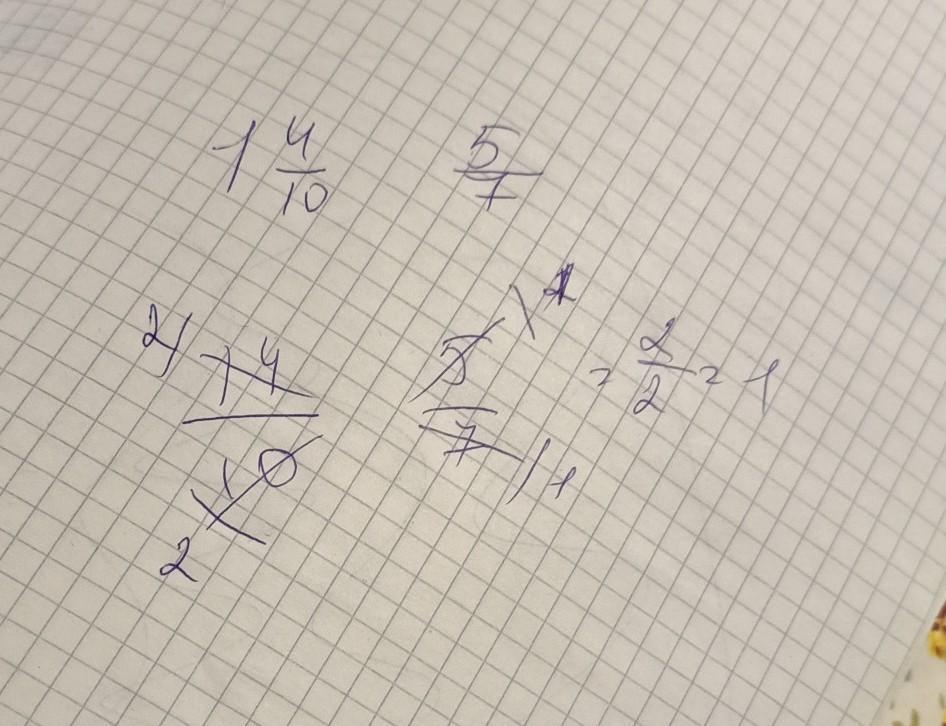 1 4/10 5/7
2 14/10 2 5/7 1 1 = 2/2 = 1